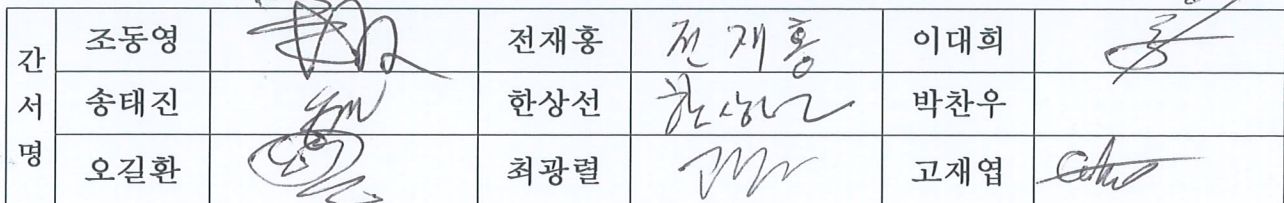 간서명
조동영 전재홍 전재홍 이대희
송태진 한상선 한상선 박찬우
오길환 최광렬 고재엽